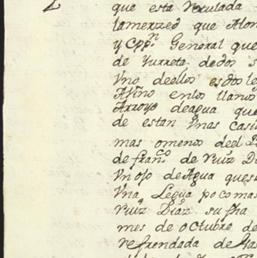 que esta Voculada
lamerzed que Alon
y Cppn General que
de Yurreta dedos s
Vno deellos esdos le
Afino enlos llanos
Arroyo deagua que
de estan Vnas Casi
mas omenos deel
de franco de Ruiz Di
Vn ojo de Agua quese
Vna Legua poco mas
Ruiz Diaz su fha
mes de octubre de
refrendada de